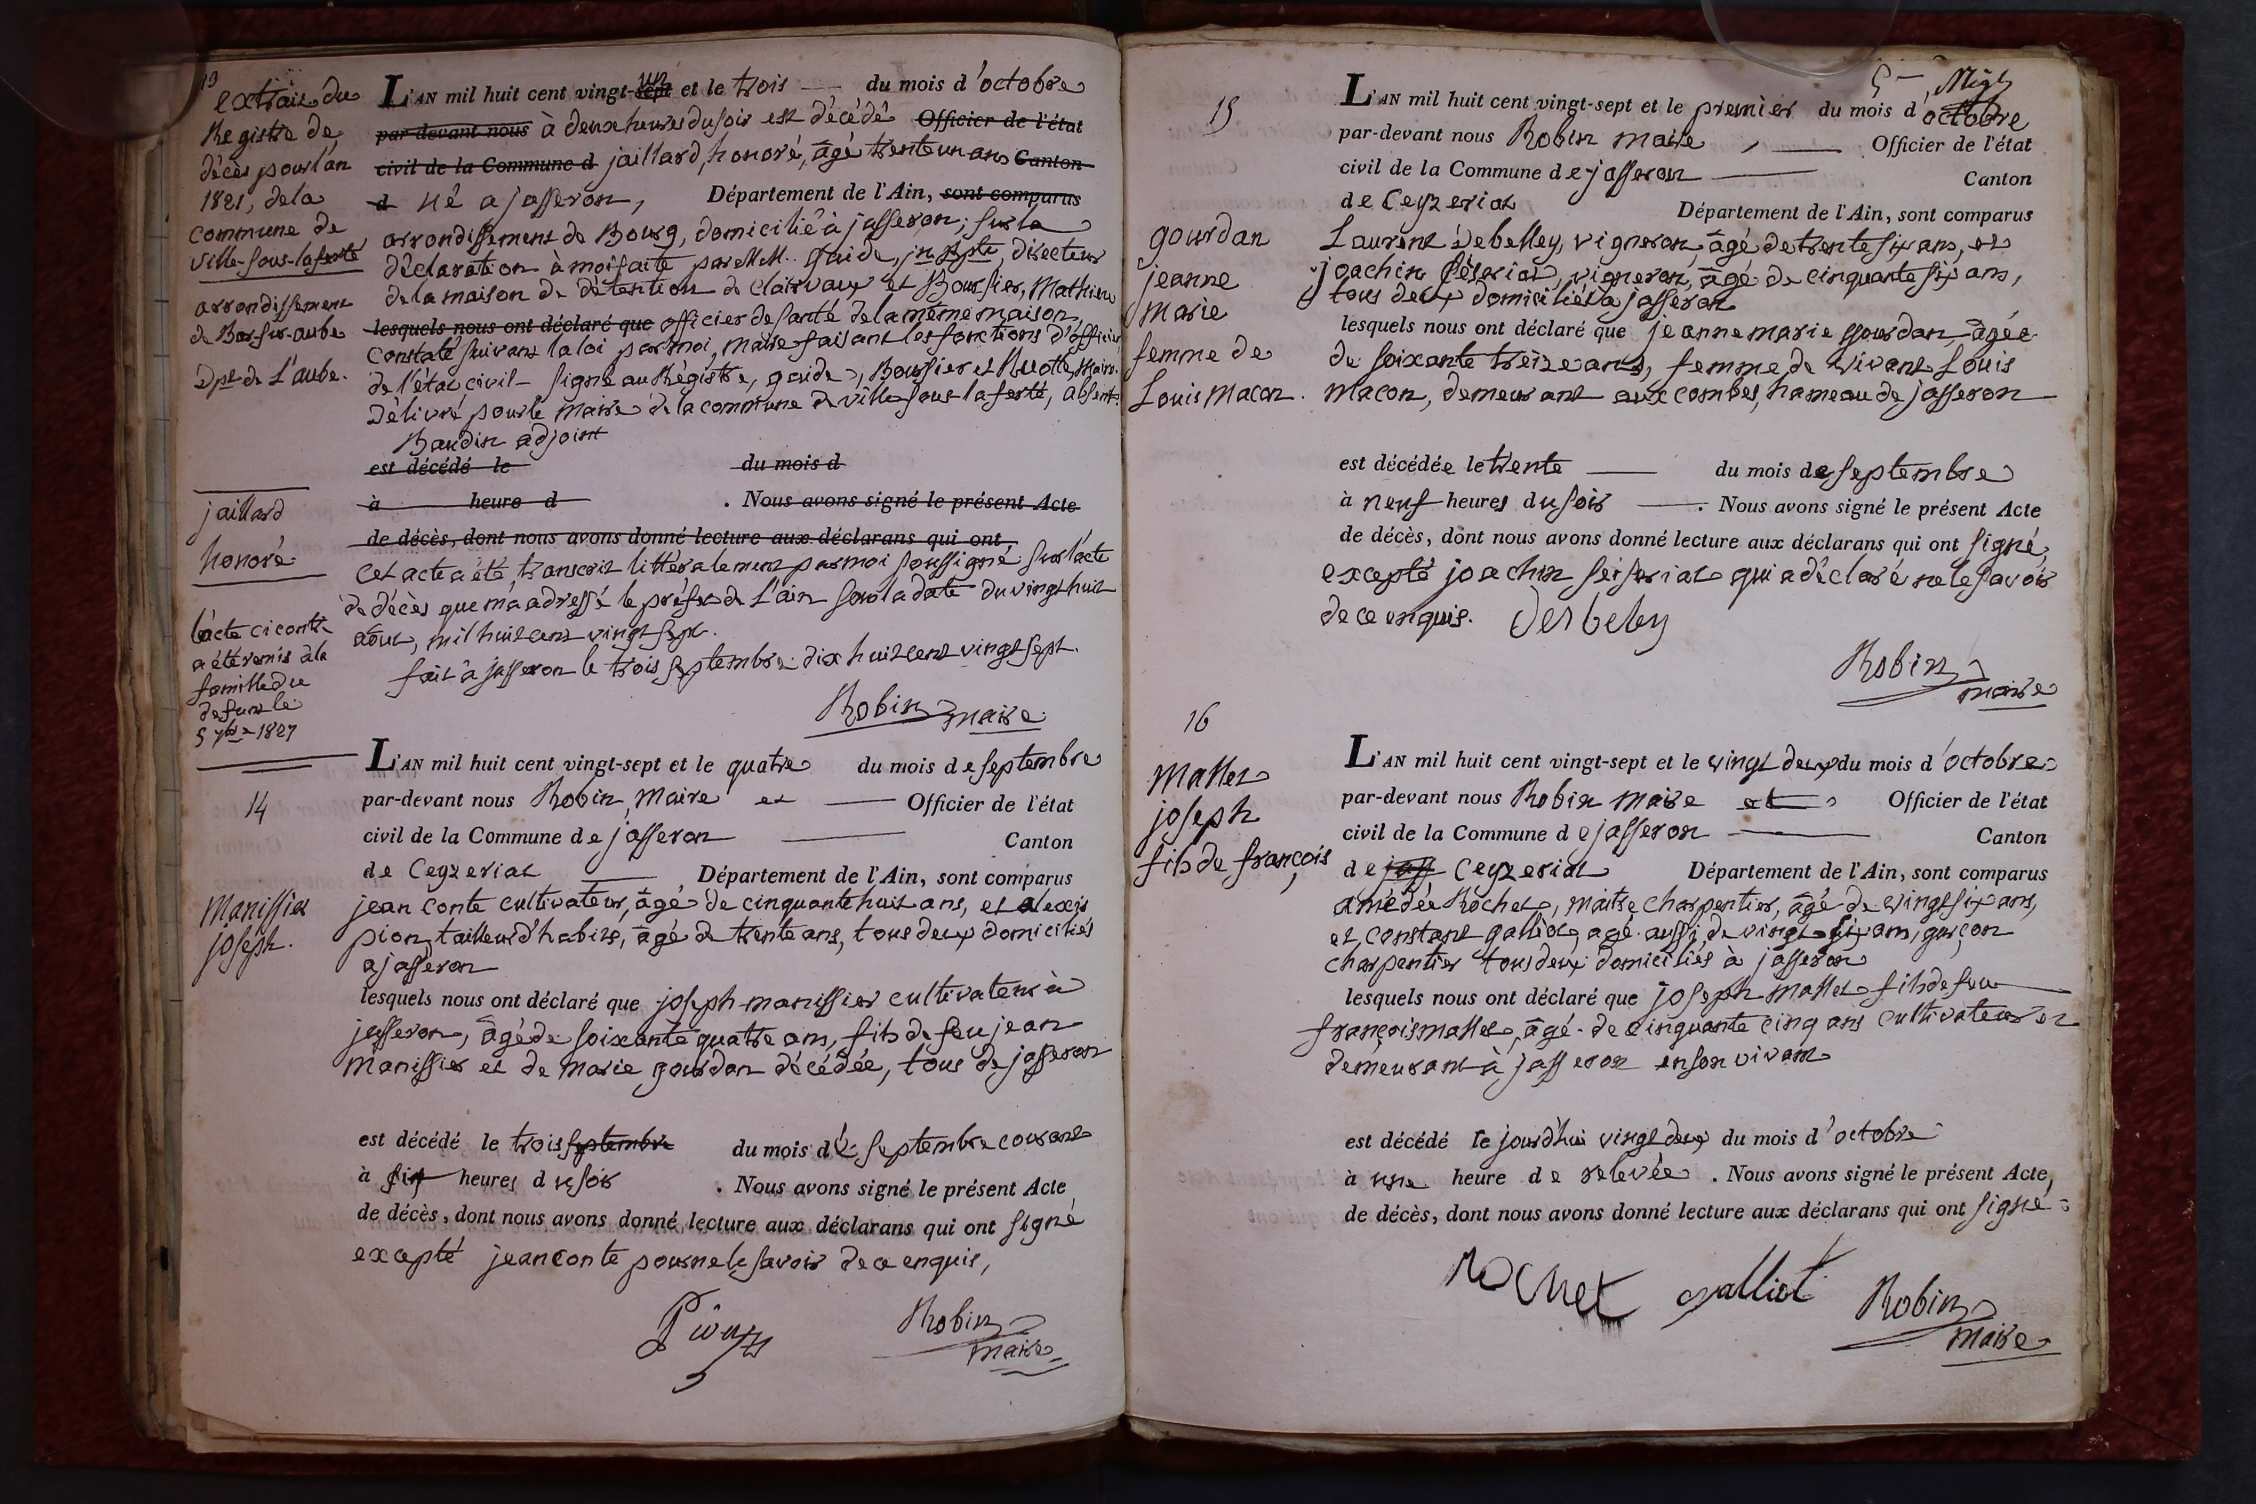 13
extrait du
Registre de
décès pour l'an
1821, de la
commune de
ville-sous-laferté
arrondissement
de Bar-sur-aube
Dpt de L'aube.
jaillard
honoré
l'acte ci contre
a été remis à la
famille du
defunt le
5 7bre 1827
L'AN mil huit cent vingt-sept un et le trois du mois d'octobre
par-devant nous à deux heures du soir est décédé Officier de l'état
civil de la Commune d jaillard, honoré, âgé trente un ans Canton
d Né a jasseron, Département de l'Ain, sont comparus
arrondissement de Bourg, domicilié à jasseron, sur la
déclaration à moi faite par MM. Guide, jn Bpte, directeur
de la maison de détention de Clairvaux et Boursier, Mathieu
lesquels nous ont déclaré que officier de santé de la même maison,
Constaté suivant la loi par moi, maire faisant les fonctions d'officier
de l'état civil - signé au Régistre, guide, Boursier et Ruotte, Maire.
Délivré pour le maire de la commune de ville sous la ferté, absent.
Baudin adjoint
est décédé le du mois d
à heure d . Nous avons signé le présent Acte
de décès, dont nous avons donné lecture aux déclarans qui ont
Cet acte a été transcrit littéralement par moi soussigné sur l'acte
de décès que m'a adressé le préfet de L'ain sous la date du vingt huit
août, mil huit cent vingt sept.
fait à jasseron le trois septembre dix huit cent vingt sept.
Robin maire
14
Manissier
joseph.
L'AN mil huit cent vingt-sept et le quatre du mois de septembre
par-devant nous Robin, Maire et Officier de l'état
civil de la Commune de jasseron Canton
de Ceyzeriat Département de l'Ain, sont comparus
jean conte cultivateur, âgé de cinquante huit ans, et alexis
pion, tailleur d'habits, âgé de trente ans, tous deux domiciliés
a jasseron
lesquels nous ont déclaré que joseph manissier cultivateur à
jasseron, âgé de soixante quatre ans, fils de feu jean
manissier et de marie gourdan décédée, tous de jasseron
est décédé le trois septembre du mois de septembre courant
à six heures du soir . Nous avons signé le présent Acte
de décès, dont nous avons donné lecture aux déclarans qui ont signé
excepté jean conte pour ne le savoir de ce enquis,
Pion
Robin
maire
15
gourdan
jeanne
Marie
femme de
Louis Macon.
L'AN mil huit cent vingt-sept et le premier du mois d'octobre
par-devant nous Robin maire Officier de l'état
civil de la Commune de jasseron Canton
de Ceyzeriat Département de l'Ain, sont comparus
Laurent Debelley, vigneron, âgé de trente six ans, et
joachin Séseriat, vigneron, âgé de cinquante six ans,
tous deux domiciliés a jasseron
lesquels nous ont déclaré que jeanne marie gourdan, âgée
de soixante treize ans, femme de vivant Louis
macon, demeurant aux combes, hameau de jasseron
est décédée le trente du mois de septembre
à neuf heures du soir . Nous avons signé le présent Acte
de décès, dont nous avons donné lecture aux déclarans qui ont signé,
excepté joachin seiseriat qui a déclaré ne le savoir
de ce enquis. Desbeley
Robin
maire
16
Mallet
joseph
fils de françois
L'AN mil huit cent vingt-sept et le vingt deux du mois d'octobre
par-devant nous Robin maire et Officier de l'état
civil de la Commune de jasseron Canton
de jass Ceyzeriat Département de l'Ain, sont comparus
amédée Rochet, maitre charpentier, âgé de vingt six ans,
et constant galliot, agé aussi de vingt six ans, garçon
charpentier tous deux domiciliés à jasseron
lesquels nous ont déclaré que joseph mallet fils de feu
françois mallet, âgé de cinquante cinq ans cultivateur et
demeurant à jasseron en son vivant
est décédé le jourd'hui vingt deux du mois d'octobre
à une heure de relevée . Nous avons signé le présent Acte,
de décès, dont nous avons donné lecture aux déclarans qui ont signé
Rochet galliot Robin
maire